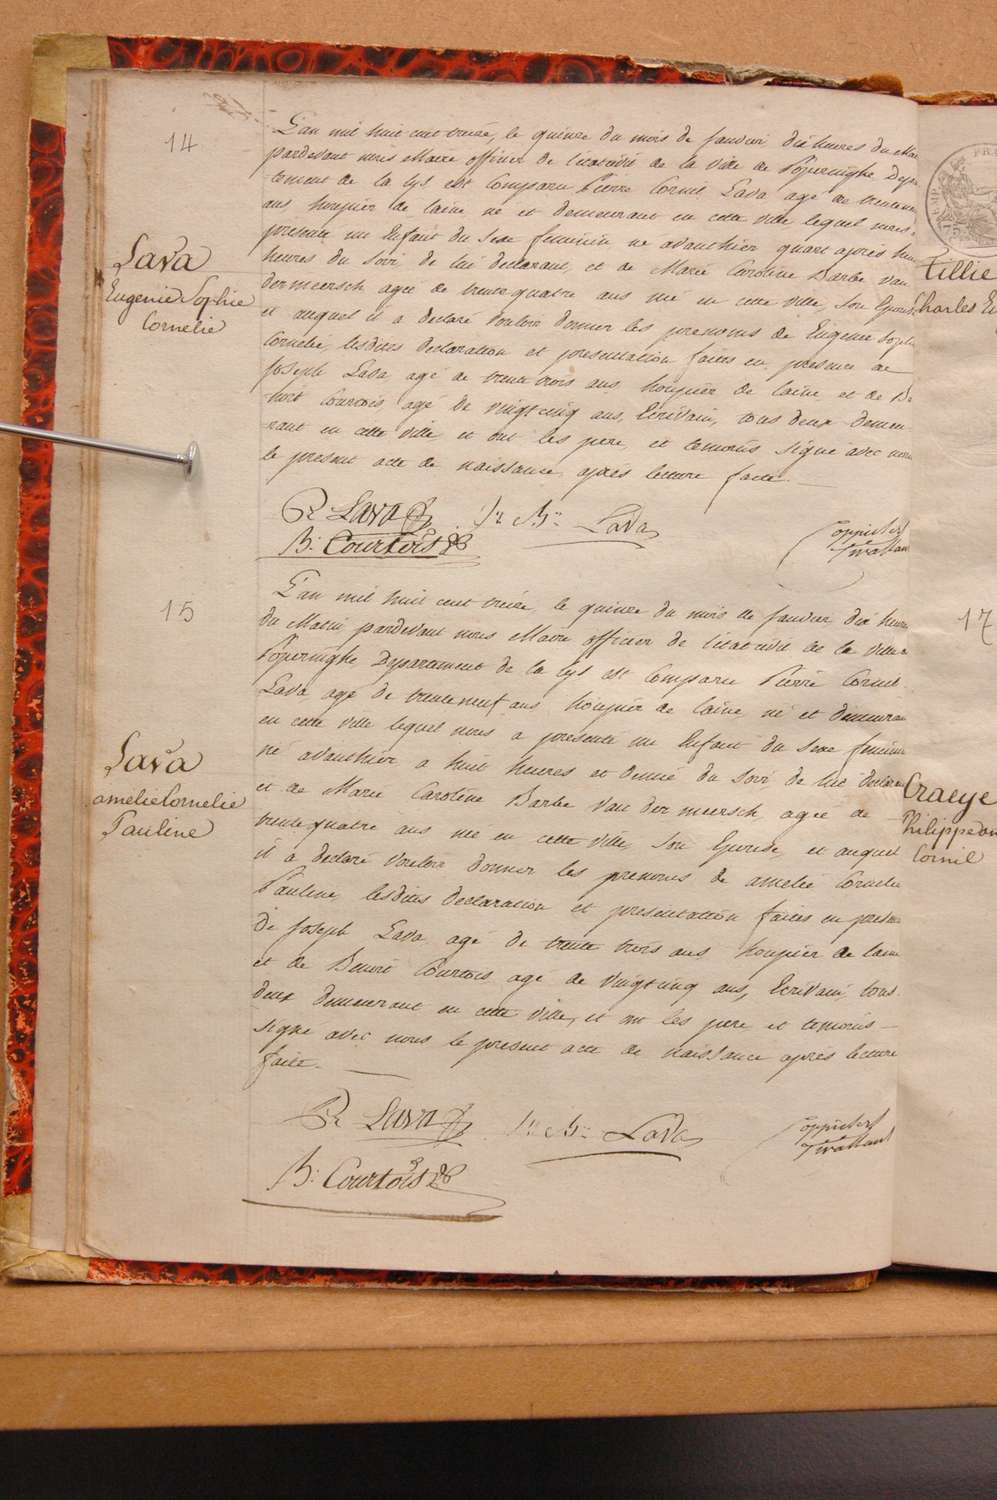 14
Lava
Eugenie Sophie
Cornelie
L'an mil huit cent treize, le quinze du mois de Janvier dix heures du Mat
pardevant nous Maire officier de l'état civil de la Ville de Poperinghe Depar
tement de la Lys est Comparu Pierre Cornil Lava agé de trenteneuf
ans houpier de laine né et demeurant en cette ville lequel nous a
presenté un Enfant du Sexe feminin né avanthier quart après huit
heures du Soir de lui declarant, et de Marie Caroline Barbe Van
dermeersch agée de trente quatre ans née en cette ville, Son Epouse
et auquel il a declaré vouloir donner les prenoms de Eugenie Sophie
Cornelie, lesdites declaration et presentation faites en presence de
Joseph Lava agé de trente trois ans houpier de laine et de Be
noit Courtois agé de vingt cinq ans, Ecrivain, tous deux demeu
rant en cette ville et ont les pere et temoins signé avec nous
le present acte de naissance après lecture faite.
P Lava Jh Bn Lava
B: Courtois
15
Lava
amelie Cornelie
Pauline
L'an mil huit cent treize, le quinze du mois de Janvier dix heures
du Matin pardevant nous Maire officier de l'état civil de la ville de
Poperinghe Departement de la Lys est Comparu Pierre Cornil
Lava agé de trenteneuf ans houpier de laine né et demeurant
en cette ville lequel nous a presenté un Enfant du Sexe feminin
né avanthier a huit heures et demie du Soir, de lui declarant
et de Marie Caroline Barbe Van der meersch agée de
trente quatre ans née en cette ville, Son Epouse, et auquel
il a declaré vouloir donner les prenoms de amelie Cornelie
Pauline, lesdites declaration et presentation faites en presence
de Joseph Lava agé de trente trois ans houpier de laine
et de Benoit Courtois agé de vingt cinq ans, Ecrivain, tous
deux demeurant en cette ville, et ont les pere et temoins
signé avec nous le present acte de naissance après lecture
faite.
P Lava Jh Bn Lava
B: Courtois
Tillie
Charles
17
Craeye
Philippe
Cornil